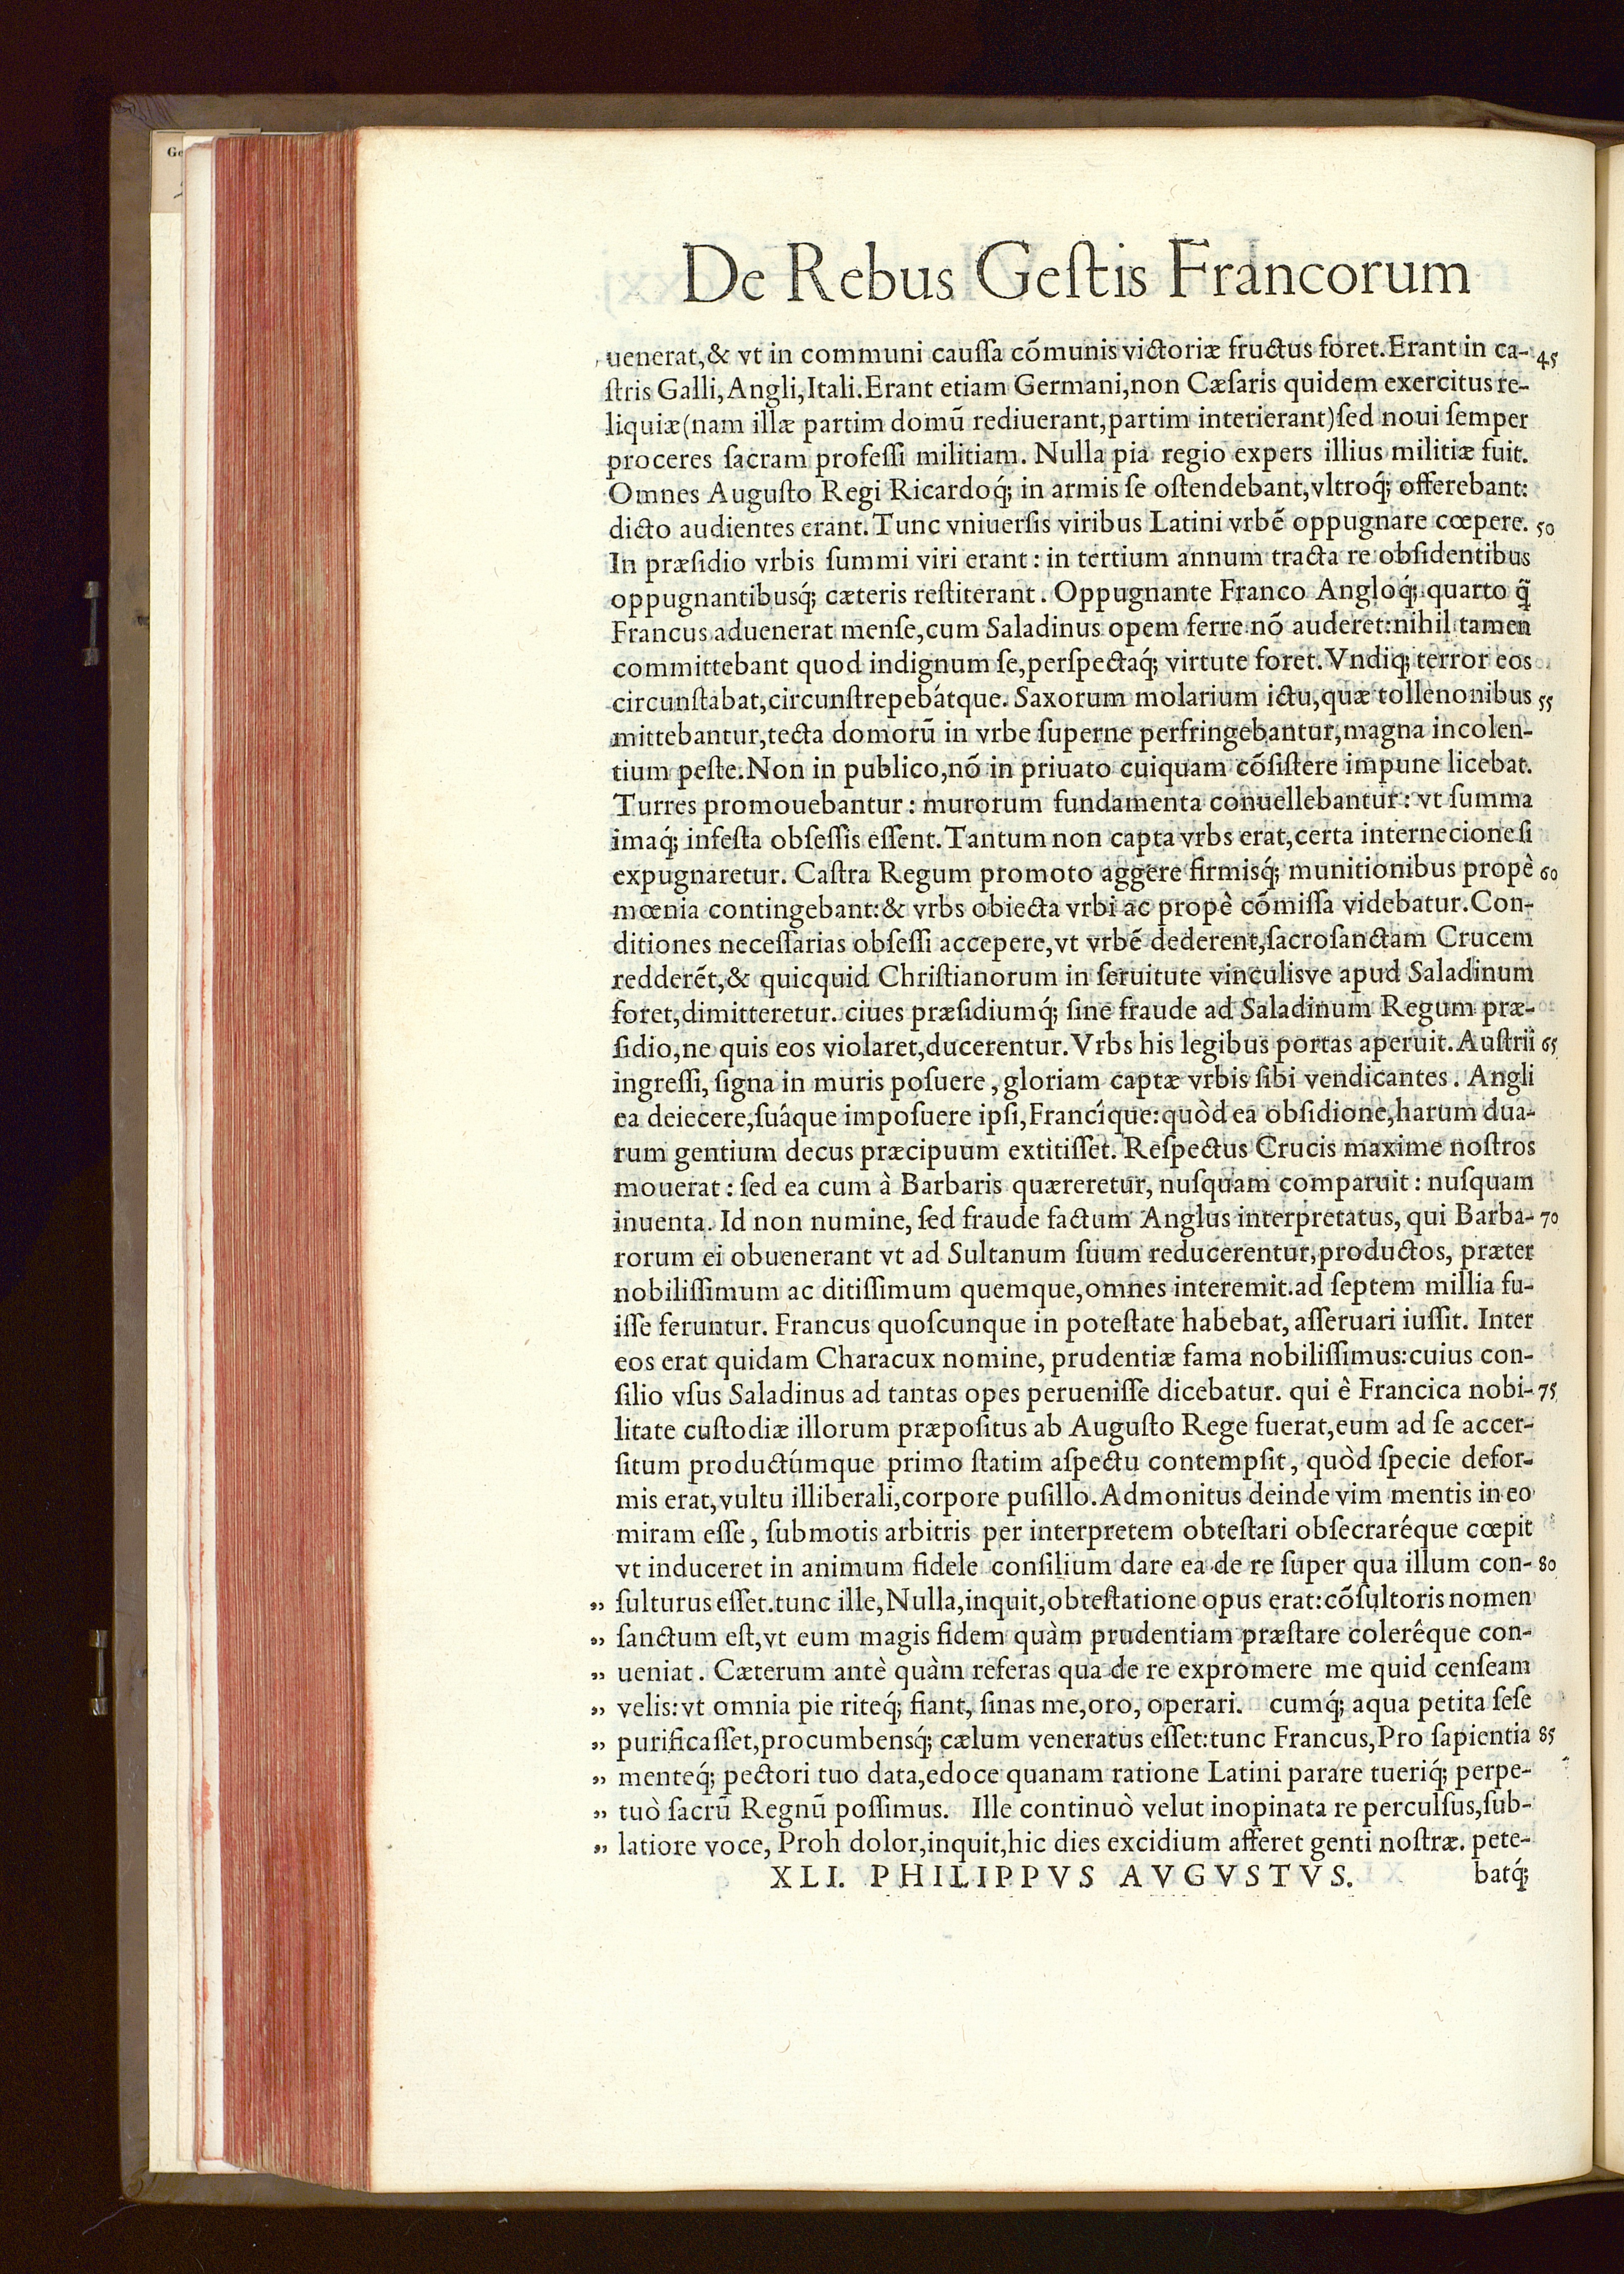 Ge
De Rebus Geſtis Francorum
uenerat,& vt in communi cauſſa cõmunis victoriæ fructus foret.Erant in ca- 45
ſtris Galli,Angli,Itali.Erant etiam Germani,non Cæſaris quidem exercitus re-
liquiæ(nam illæ partim domũ rediuerant,partim interierant)ſed noui ſemper
proceres ſacram profeſſi militiam. Nulla pia regio expers illius militiæ fuit.
Omnes Auguſto Regi Ricardoq́; in armis ſe oſtendebant,vltroq́; offerebant:
dicto audientes erant. Tunc vniuerſis viribus Latini vrbẽ oppugnare cœpere. 50
In præſidio vrbis ſummi viri erant: in tertium annum tracta re obſidentibus
oppugnantibusq́; cæteris reſtiterant. Oppugnante Franco Angloq́; quarto q̃
Francus aduenerat menſe,cum Saladinus opem ferre nõ auderet:nihil tamen
committebant quod indignum ſe,perſpectaq́; virtute foret. Vndiq; terror eos
circunſtabat,circunſtrepebátque. Saxorum molarium ictu,quæ tollenonibus 55
mittebantur,tecta domorũ in vrbe ſuperne perfringebantur,magna incolen-
tium peſte.Non in publico,nõ in priuato cuiquam cõſiſtere impune licebat.
Turres promouebantur: murorum fundamenta conuellebantur: vt ſumma
imaq́; infeſta obſeſſis eſſent. Tantum non capta vrbs erat,certa internecione ſi
expugnaretur. Caſtra Regum promoto aggere firmisq́; munitionibus propè 60
mœnia contingebant:& vrbs obiecta vrbi ac propè cõmiſſa videbatur.Con-
ditiones neceſſarias obſeſſi accepere,vt vrbẽ dederent,ſacroſanctam Crucem
redderẽt,& quicquid Chriſtianorum in ſeruitute vinculisve apud Saladinum
foret,dimitteretur. ciues præſidiumq́; ſine fraude ad Saladinum Regum præ-
ſidio,ne quis eos violaret,ducerentur. Vrbs his legibus portas aperuit. Auſtrii 65
ingreſſi, ſigna in muris poſuere, gloriam captæ vrbis ſibi vendicantes. Angli
ea deiecere,ſuáque impoſuere ipſi,Francîque:quòd ea obſidione,harum dua-
rum gentium decus præcipuum extitiſſet. Reſpectus Crucis maxime noſtros
mouerat: ſed ea cum à Barbaris quæreretur, nuſquam comparuit: nuſquam
inuenta. Id non numine, ſed fraude factum Anglus interpretatus, qui Barba- 70
rorum ei obuenerant vt ad Sultanum ſuum reducerentur,productos, præter
nobiliſſimum ac ditiſſimum quemque,omnes interemit.ad ſeptem millia fu-
iſſe feruntur. Francus quoſcunque in poteſtate habebat, aſſeruari iuſſit. Inter
eos erat quidam Characux nomine, prudentiæ fama nobiliſſimus:cuius con-
ſilio vſus Saladinus ad tantas opes perueniſſe dicebatur. qui ê Francica nobi- 75
litate cuſtodiæ illorum præpoſitus ab Auguſto Rege fuerat,eum ad ſe accer-
ſitum productúmque primo ſtatim aſpectu contempſit, quòd ſpecie defor-
mis erat,vultu illiberali,corpore puſillo.Admonitus deinde vim mentis in eo
miram eſſe, ſubmotis arbitris per interpretem obteſtari obſecraréque cœpit
vt induceret in animum fidele conſilium dare ea de re ſuper qua illum con- 80
„ ſulturus eſſet.tunc ille,Nulla,inquit,obteſtatione opus erat:cõſultoris nomen
„ ſanctum eſt,vt eum magis fidem quàm prudentiam præſtare colerêque con-
„ ueniat. Cæterum antè quàm referas qua de re expromere me quid cenſeam
„ velis:vt omnia pie riteq́; fiant, ſinas me,oro, operari. cumq́; aqua petita ſeſe
„ purificaſſet,procumbensq́; cælum veneratus eſſet:tunc Francus,Pro ſapientia 85
„ menteq́; pectori tuo data,edoce quanam ratione Latini parare tueriq́; perpe-
„ tuò ſacrũ Regnũ poſſimus. Ille continuò velut inopinata re perculſus,ſub-
„ latiore voce, Proh dolor,inquit,hic dies excidium afferet genti noſtræ. pete-
XLI. PHILIPPVS AVGVSTVS. batq́;